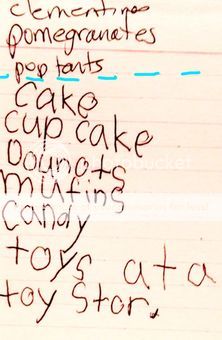 clementines
pomegranates
pop tarts
Cake
cup cake
Dounots
mufins
candy
toys at a
toy Stor.